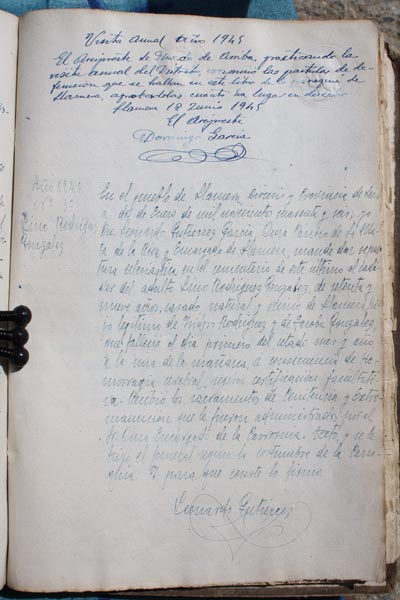 Visita Anual Año 1945
El Arcipreste de Murias de Arriba, practicando la
visita anual del Distrito, examinó las partidas de de-
función que se hallan en este libro de la parroquia de
Llamera, aprobándolas cuanto ha lugar en derecho
Llamera 18 Junio 1945
El Arcipreste
Domingo García
Año 1946
Nº 1º
Lino Rodríguez
González
En el pueblo de Llamera, Diócesis y Provincia de
de Enero de mil novecientos cuarenta y seis, yo
Don Leonardo Gutiérrez García, Cura Párroco de La Mata
de la Riva y Encargado de Llamera, mandé dar sepul-
tura eclesiástica en el cementerio de este último al cadá-
ver del adulto Lino Rodríguez González, de setenta y
nueve años, casado, natural y vecino de Llamera, hijo
legítimo de Isidro Rodríguez y de Jacoba González,
que falleció el día primero del citado mes y año
a la una de la mañana, a consecuencia de he-
morragia cerebral, según certificación facultati-
va. Recibió los sacramentos de Penitencia y Extre-
maunción que le fueron administrados por el
Sr. Cura Encargado de la Parroquia. Testó, y se le
hizo el funeral según la costumbre de la Parro-
quia. Y para que conste lo firmo
Leonardo Gutiérrez